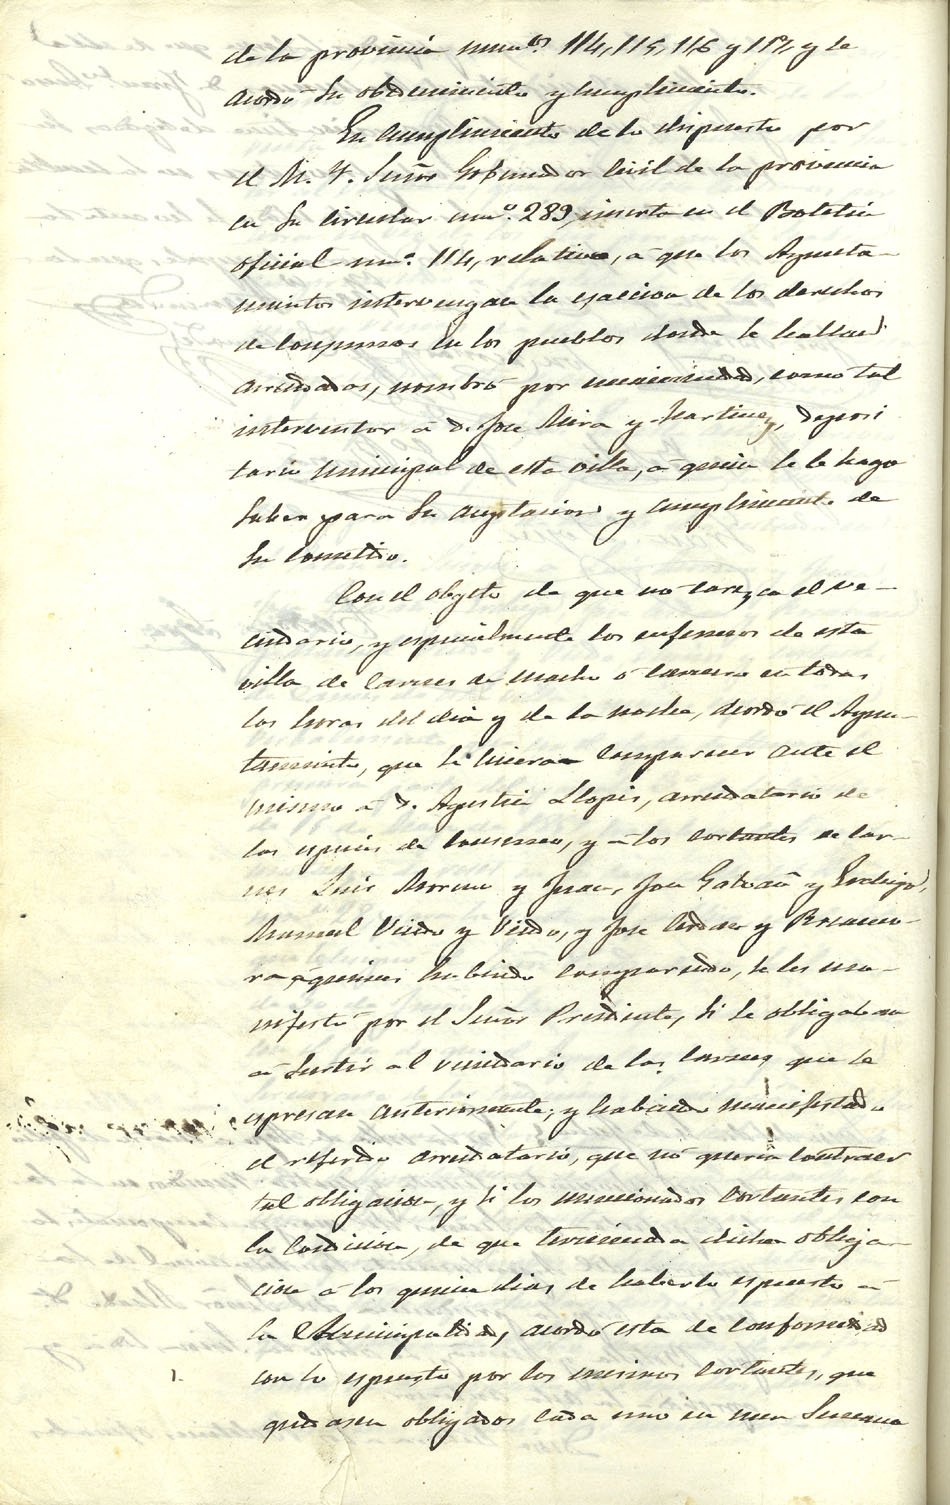 de la provincia numos 114, 115, 116 y 117 y se
acordó su obedecimiento y cumplimiento.
En cumplimiento de lo dispuesto por
el M. Y. Señor Gobernador Civil de la provincia
en su circular nuo. 289, inserta en el Boletin
oficial nuo. 114, relativa, á que los Ayunta-
mientos intervengan la esaccion de los derechos
de consumos en los pueblos donde se hallan
arrendados, nombró por unanimidad, como tal
interventor a D. Jose Mira y Martinez, deposi
tario municipal de esta villa, á quien se le haga
saber para su aceptacion y cumplimiento de
su cometido.
Con el objeto de que no carezca el ve-
cindario, y especialmente los enfermos de esta
villa de carnes de macho ó carnero en todas
las horas del dia y de la noche, acordó el Ayun-
tamiento, que se hiciera comparecer ante el
mismo á D. Agustin Llopis, arrendatario de
las especies de consumo, y á los cortantes de car-
nes Luis Moreno y Juan, Jose Galvañ y
Manuel Verdu y Verdu, y Jose y Rocamo-
ra á quienes habiendo comparecido, se les ma-
nifestó por el Señor Presidente, si se obligaban
á surtir al vecindario de las carnes que se
espresan anteriormente; y habiendo manifestado
el referido arrendatario, que no queria contraer
tal obligacion, y si los mencionados cortantes con
la condicion, de que terminenda dicha obliga-
cion á los quince dias de haberlo espuesto á
la Municipalidad, acordó esta de conformidad
con lo espuesto por los mismos cortantes, que
quedasen obligados cada uno en una semana